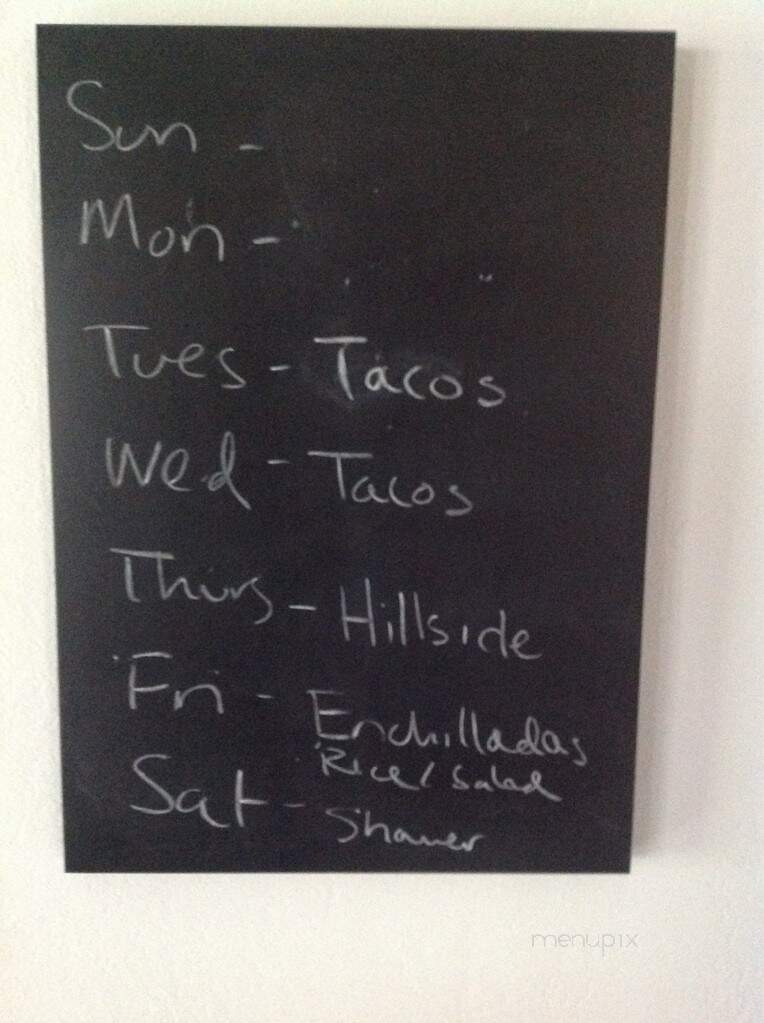 Sun -
Mon -
Tues - Tacos
Wed - Tacos
Thurs - Hillside
Fri - Enchilladas
Rice / Salad
Sat - Shower
menupix